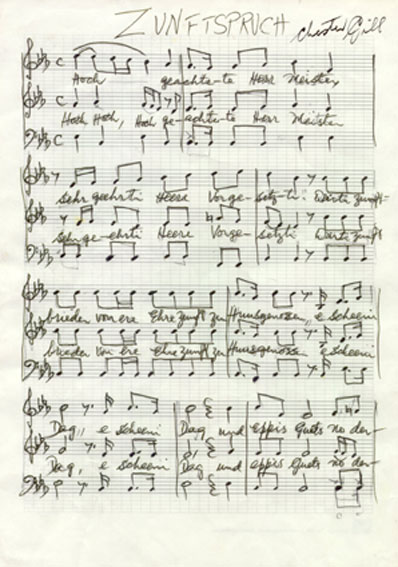 ZUNFTSPRUCH
Chester Gill
Hoch geachte-te Herr Meister,
Hoch Hoch, Hoch ge-achte-te Herr Meister
Sehr geehrti Heere Vorge-setz-ti. Werti Zunft-
Sehr ge-ehrti Heere Vorge-setzti Werti Zunft
brieder von ere Ehrezunft zu Huusgenosse, e scheeni
brieder von ere Ehrezunft zu Huusgenosse, e scheeni
Dag, e scheeni Dag und eppis Guets no der-
Dag, e scheeni Dag und eppis Guets no der-